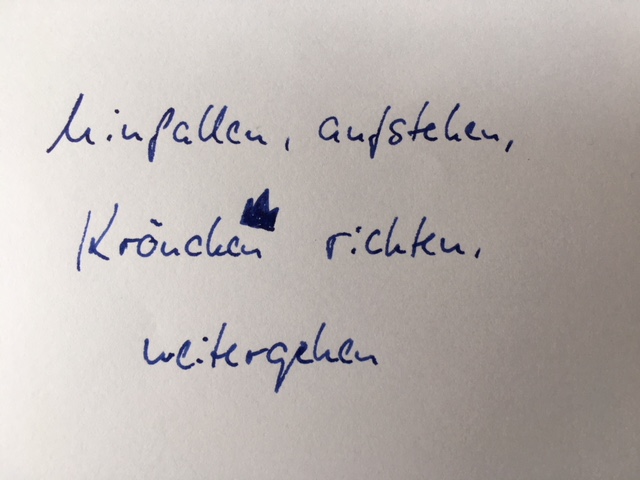 hinfallen, aufstehen,
Krönchen richten,
weitergehen